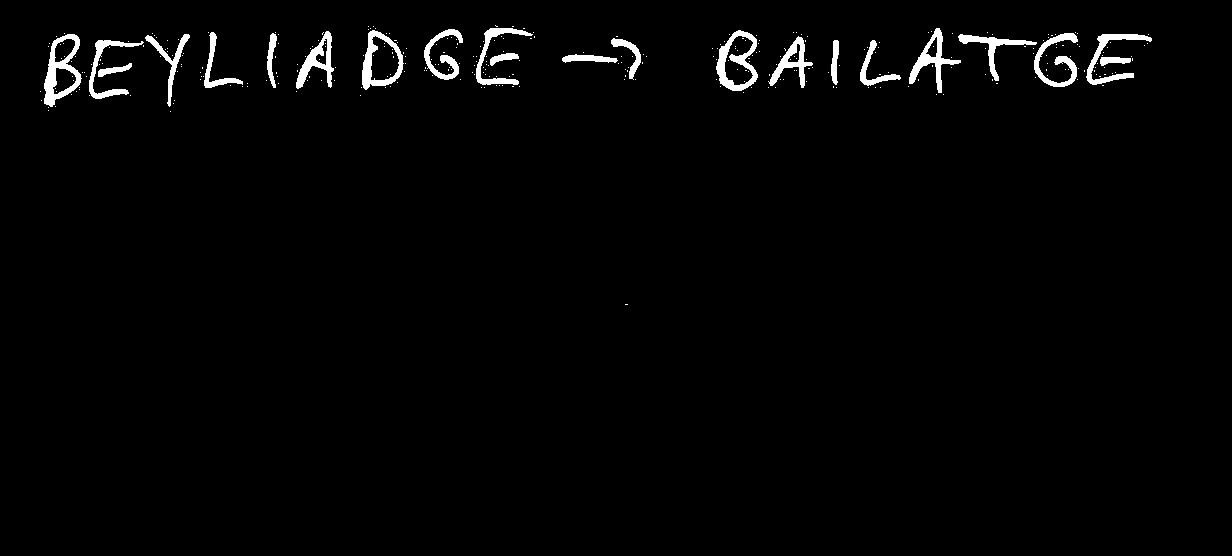 BEYLIADGE → BAILATGE